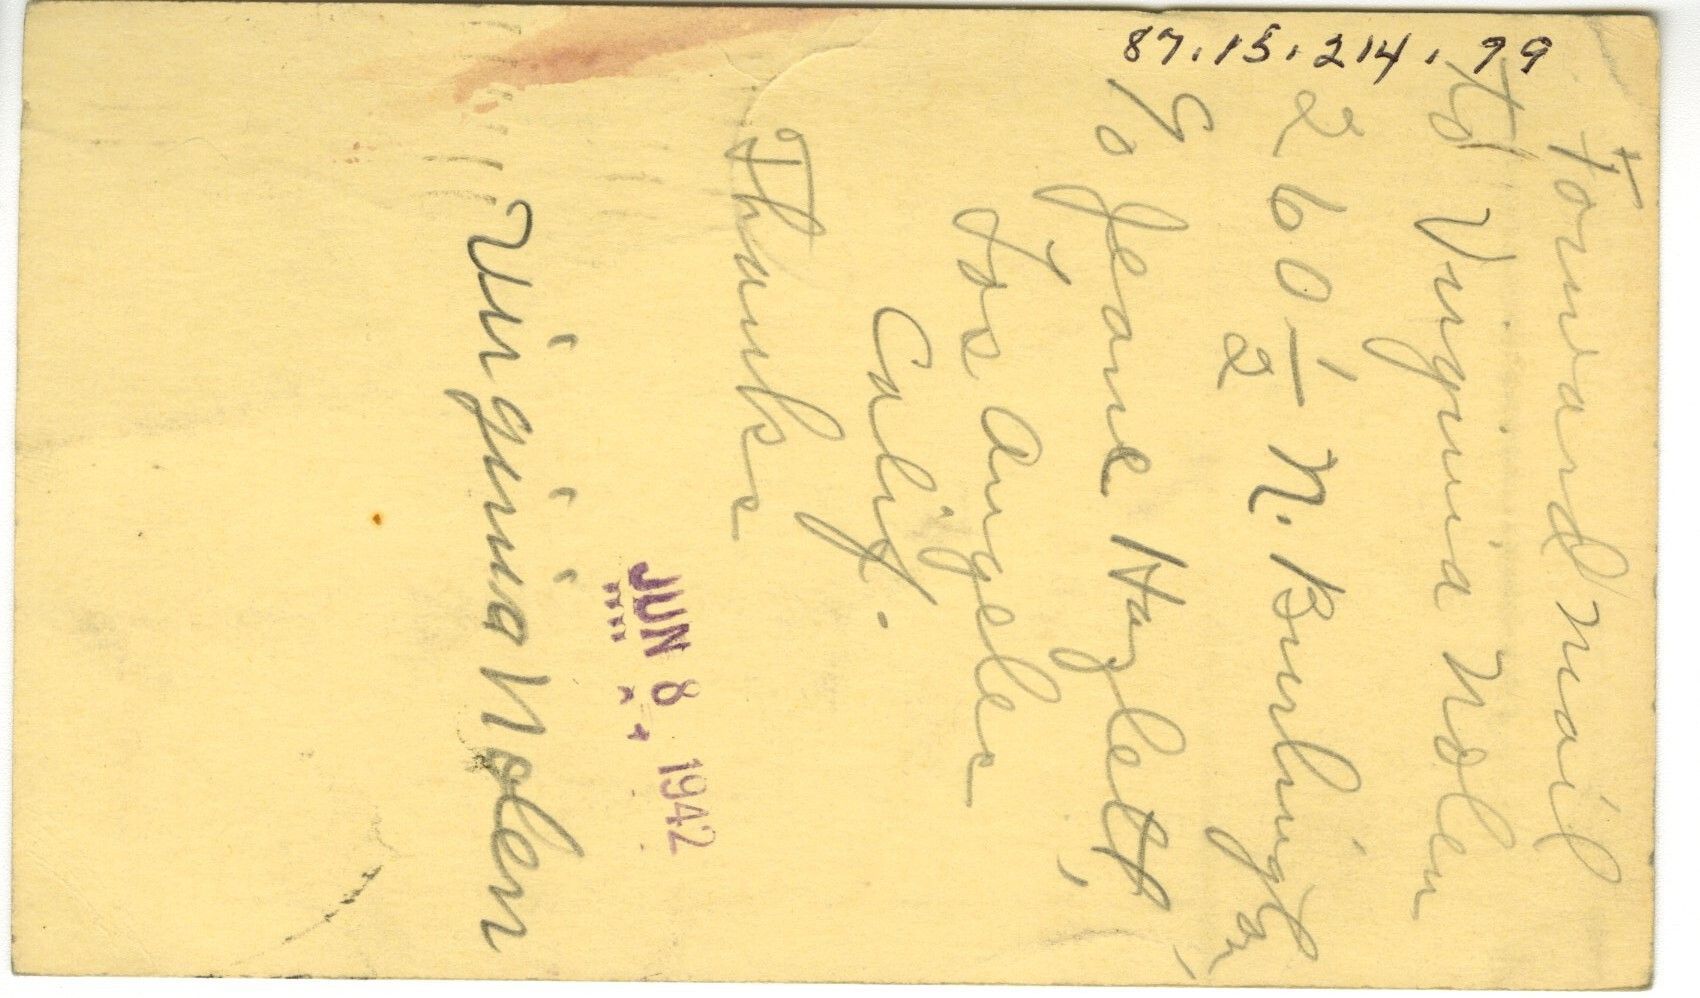 87.15.214.99
Forward mail
to Virginia Nolen
260 1/2 N. Burlington,
c/o Jeane Hazlett,
Los Angeles
Calif.
Thanks
JUN 8 1942
Virginia Nolen